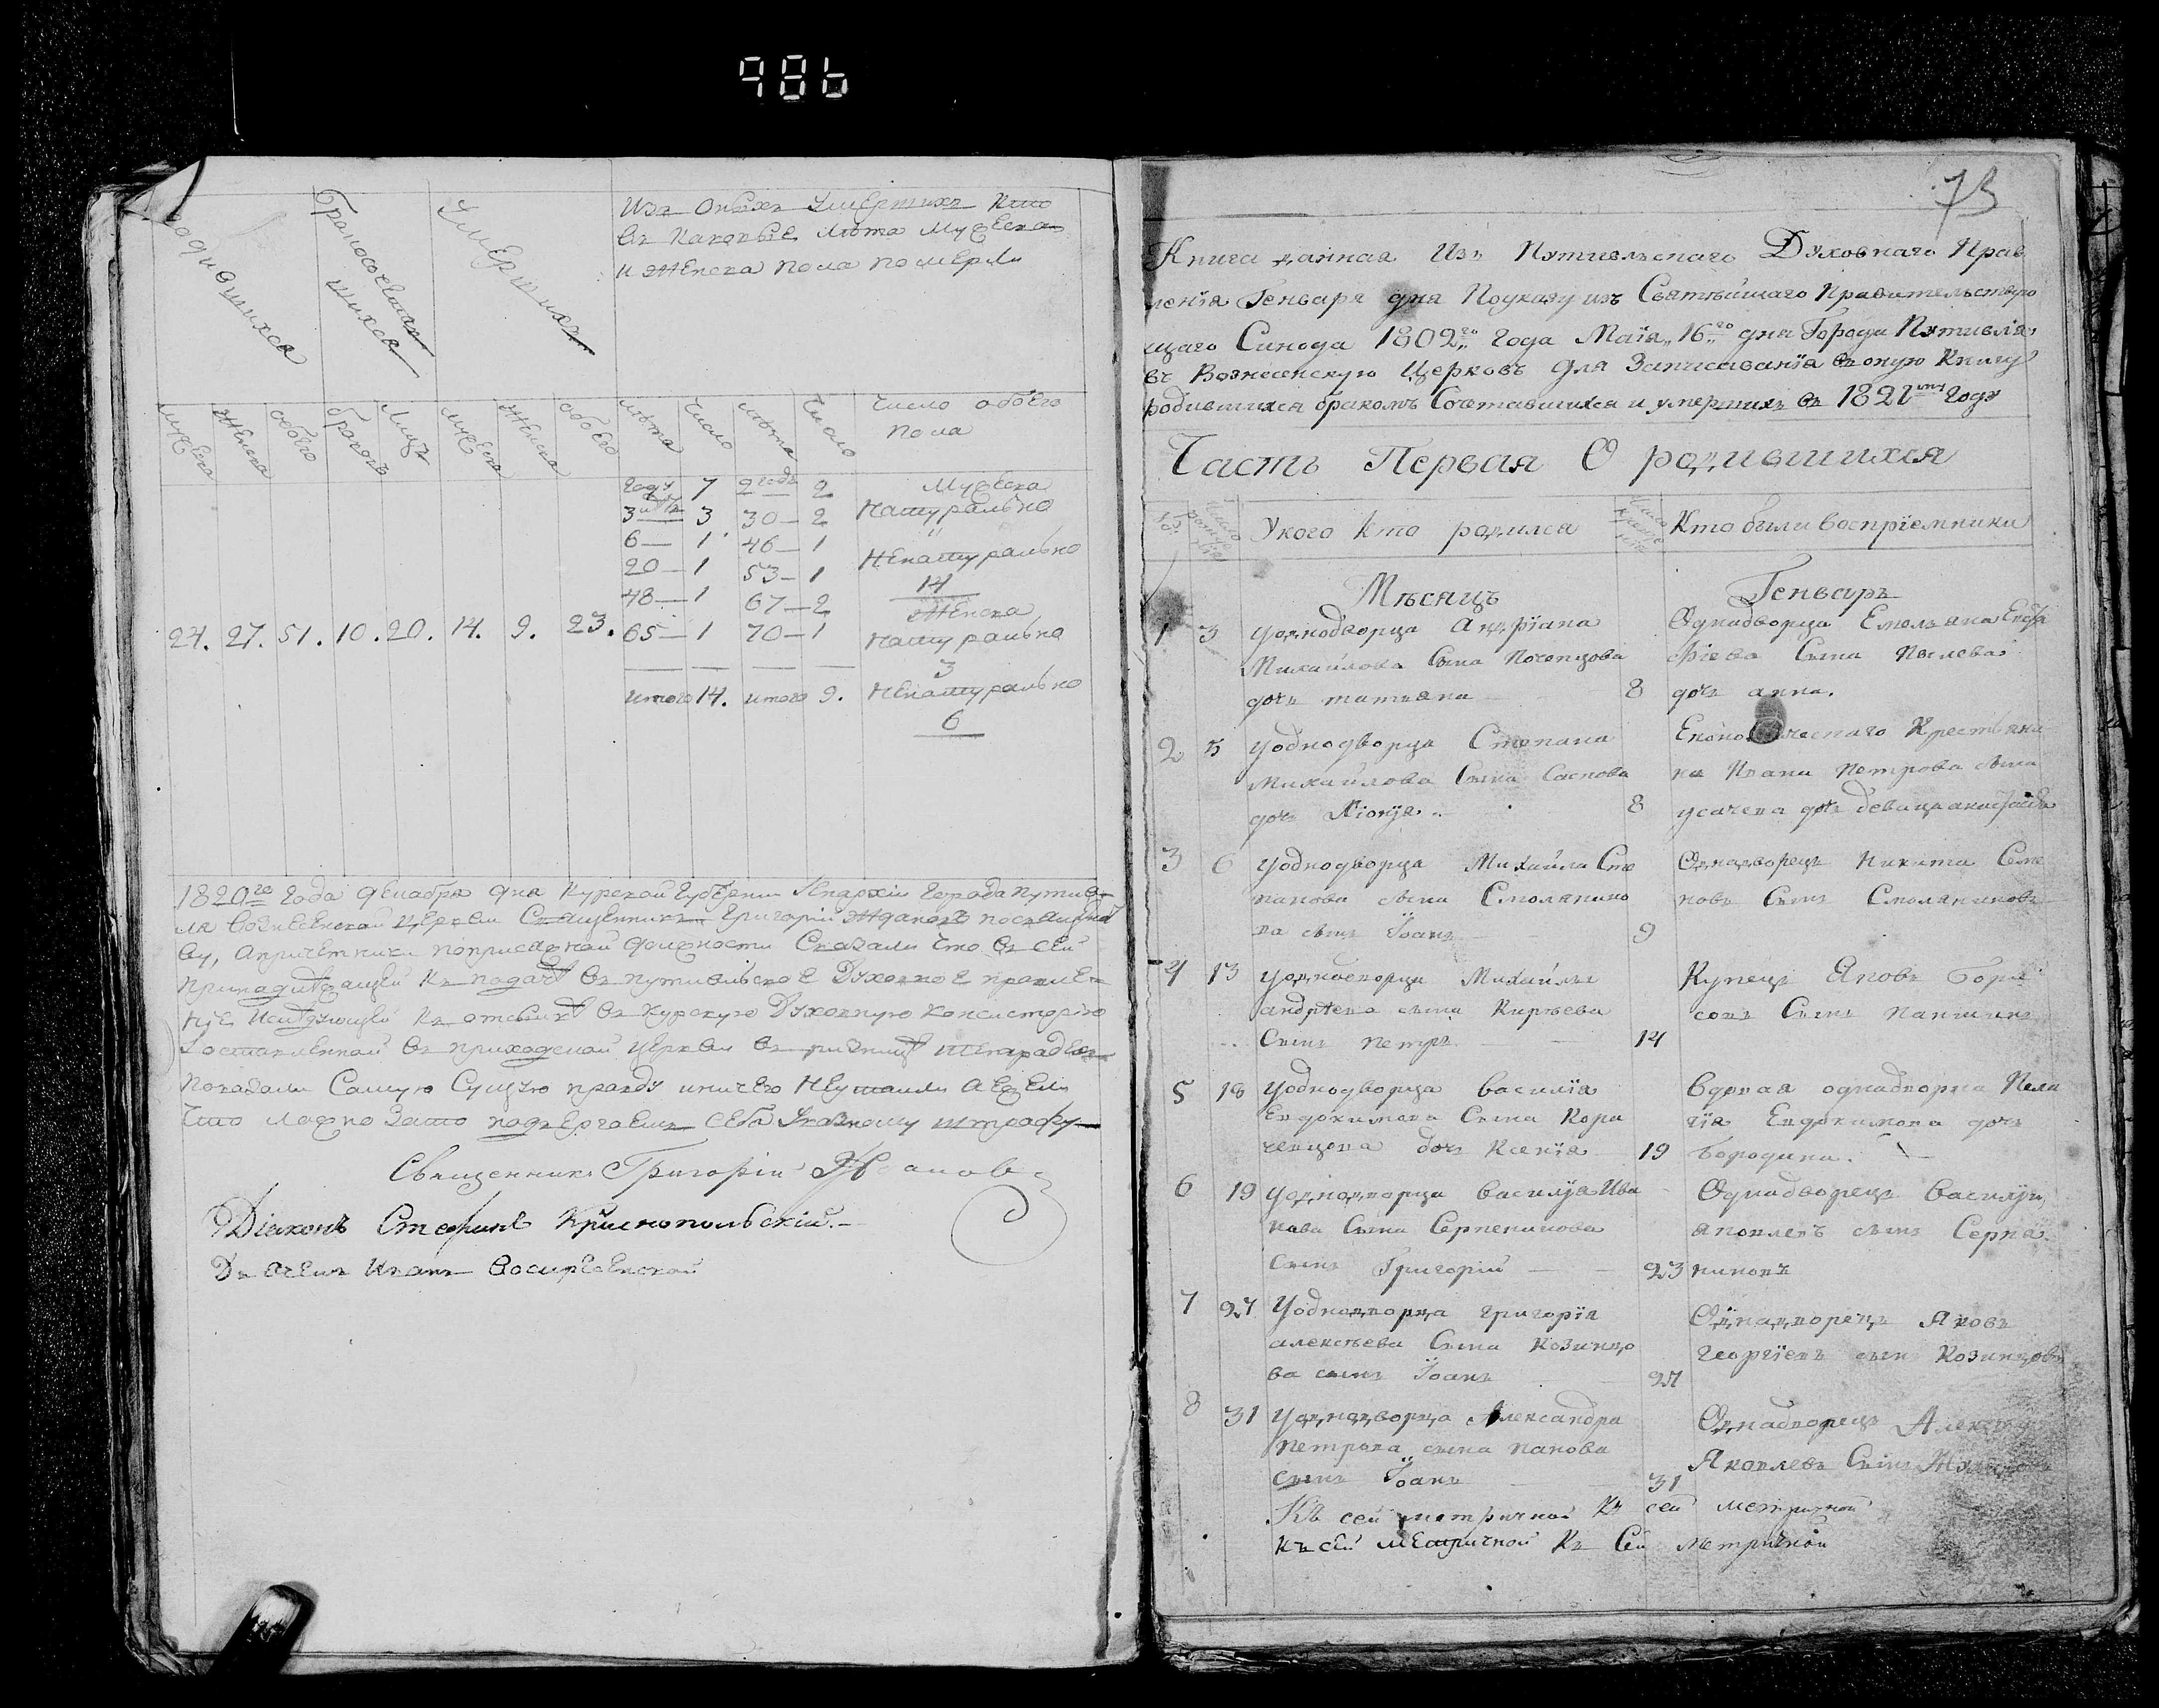 986
родившихся
бракосочетавшихся
умершихъ
Изъ оныхъ умершихъ кто
въ каковые лѣта мужеска
и женска пола померли
мужеска
женска
обоего
браковъ
Лицъ
мужеска
женска
обоего
лѣта
число
лѣта
число
число обоего
пола
году 7 2 годъ 2 мужеска
3 3 30 — 2 натурально
6 — 1 46 — 1 "
20 — 1 53 — 1 ненатурально
48 — 1 67 — 2 14
женска
24. 27. 51. 10. 20. 14. 9. 23. 65 — 1 70 — 1 натурально
3
итого 14. итого 9. ненатурально
6
1820го года декабря дня Курской губернии Епархіи города Путив-
ля Вознесенской церкви Священникъ Григорій Ждановъ по священству
ву, а причетники по присяжной должности Сказали что въ сей
къ подачѣ въ Путивльское Духовное правле-
ніе и къ отсылкѣ въ Курскую Духовную Консисторію
и оставленной въ приходской церкви въ ризницѣ тетрадехъ
показали Самую Сущую правду и ничего неутаили а ежели
что ложно Зато подвергаемъ себя Указному штрафу
Священникъ Григорій Ждановъ
Діаконъ Стефанъ Краснопольскій. —
Дьячекъ Иванъ Воскресенской
73
Книга данная Изъ Путивльскаго Духовнаго Прав
ленія Генваря дня По указу изъ Святѣйшаго Правительствую
щаго Синода 1802го года Маія 16го дня Города Путивля
въ Вознесенскую Церковь для Записыванія въ оную Книгу
родившихся бракомъ Сочетавшихся и умершихъ въ 1821мъ Году
Часть Первая О родившихся
Число рожденія
У кого кто родился
Число крещенія
Кто были воспріемники
Мѣсяцъ Генварь
1 3 у однодворца Андріана Однадворца Емельяна
Михайлова Сына Почепцова Сына
дочь татьяна 8 дочь анна.
2 5 у однодворца Степана Економическаго Крестьяни
Михайлова Сына Саснова на Ивана Петрова сына
дочь 8 усачева дочь девица
3 6 у однодворца Михайла Сте Однадворецъ Никита Семе
панова сына Смолянино новъ Сынъ Смоляниновъ
ва сынъ Іоанъ 9
4 13 у однодворца Михайлы Купецъ Яковъ Бори
андрѣева сына Кирѣева совъ Сынъ
Сынъ петръ 14
5 18 у однодворца василія вдовая однадворка Пела
Евдокимова Сына Кори гія Евдокимова дочь
ченцова дочь Ксенія 19 Бородина.
6 19 у однодворца василія Ива Однадворецъ василій
нова Сына Серпенинова яковлевъ сынъ Серпе
Сынъ Григорій 23 ниновъ
7 27 у однодворца григорія Однадворецъ Яковъ
алексѣева Сына Козинцо георгіевъ сынъ Козинцовъ
ва сынъ Іоанъ 27
8 31 у однодворца Александра Однадворецъ
петрова сына панова Яковлевъ Сынъ
сынъ Іоанъ 31
Къ сей метричной Къ сей метричной
къ сей метричной Къ Сей метричной